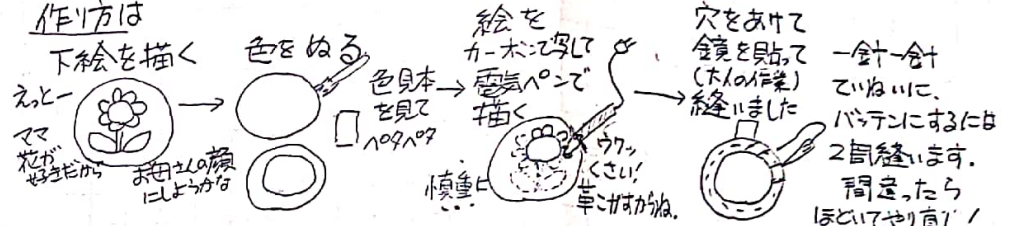 作り方は
下絵を描く
えっとー
ママ
花が
好きだから
お母さんの顔
にしようかな
色をぬる
色見本
を見て
ペタペタ
絵を
カーボンで写して
電気ペンで
描く
慎重に
…
ウワッ
くさい!
革こがすからね。
穴をあけて
鏡を貼って
(大人の作業)
縫いました
一針一針
ていねいに、
バッテンにするには
2周縫います。
間違ったら
ほどいてやり直し!